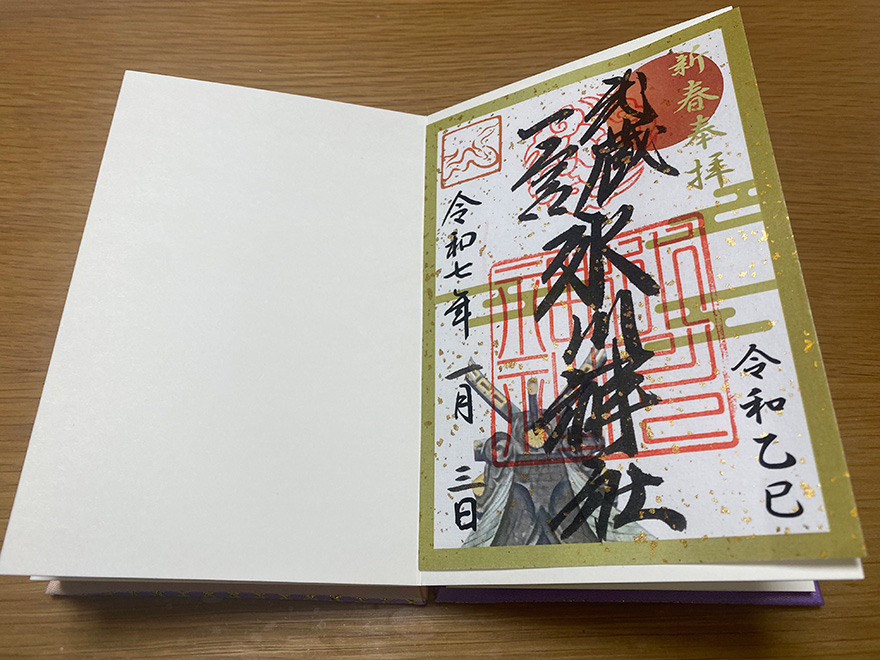 新春奉拝
令和乙巳
武蔵
一宮
氷川神社
令和七年 一月 三日